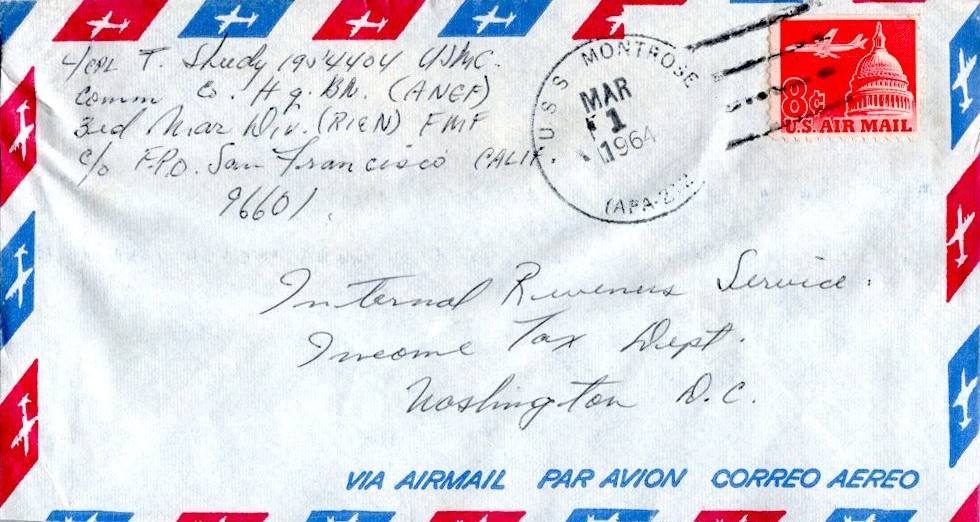 L/CPL T. Sheedy 1954404 USMC.
Comm Co. Hq. Bn. (ANGF)
3rd Mar Div. (REIN) FMF
c/o F.P.O. San Francisco CALIF.
96601
USS MONTROSE
MAR
1
1964
(APA-212)
8¢
U.S. AIR MAIL
Internal Revenue Service.
Income Tax Dept.
Washington D.C.
VIA AIRMAIL PAR AVION CORREO AEREO